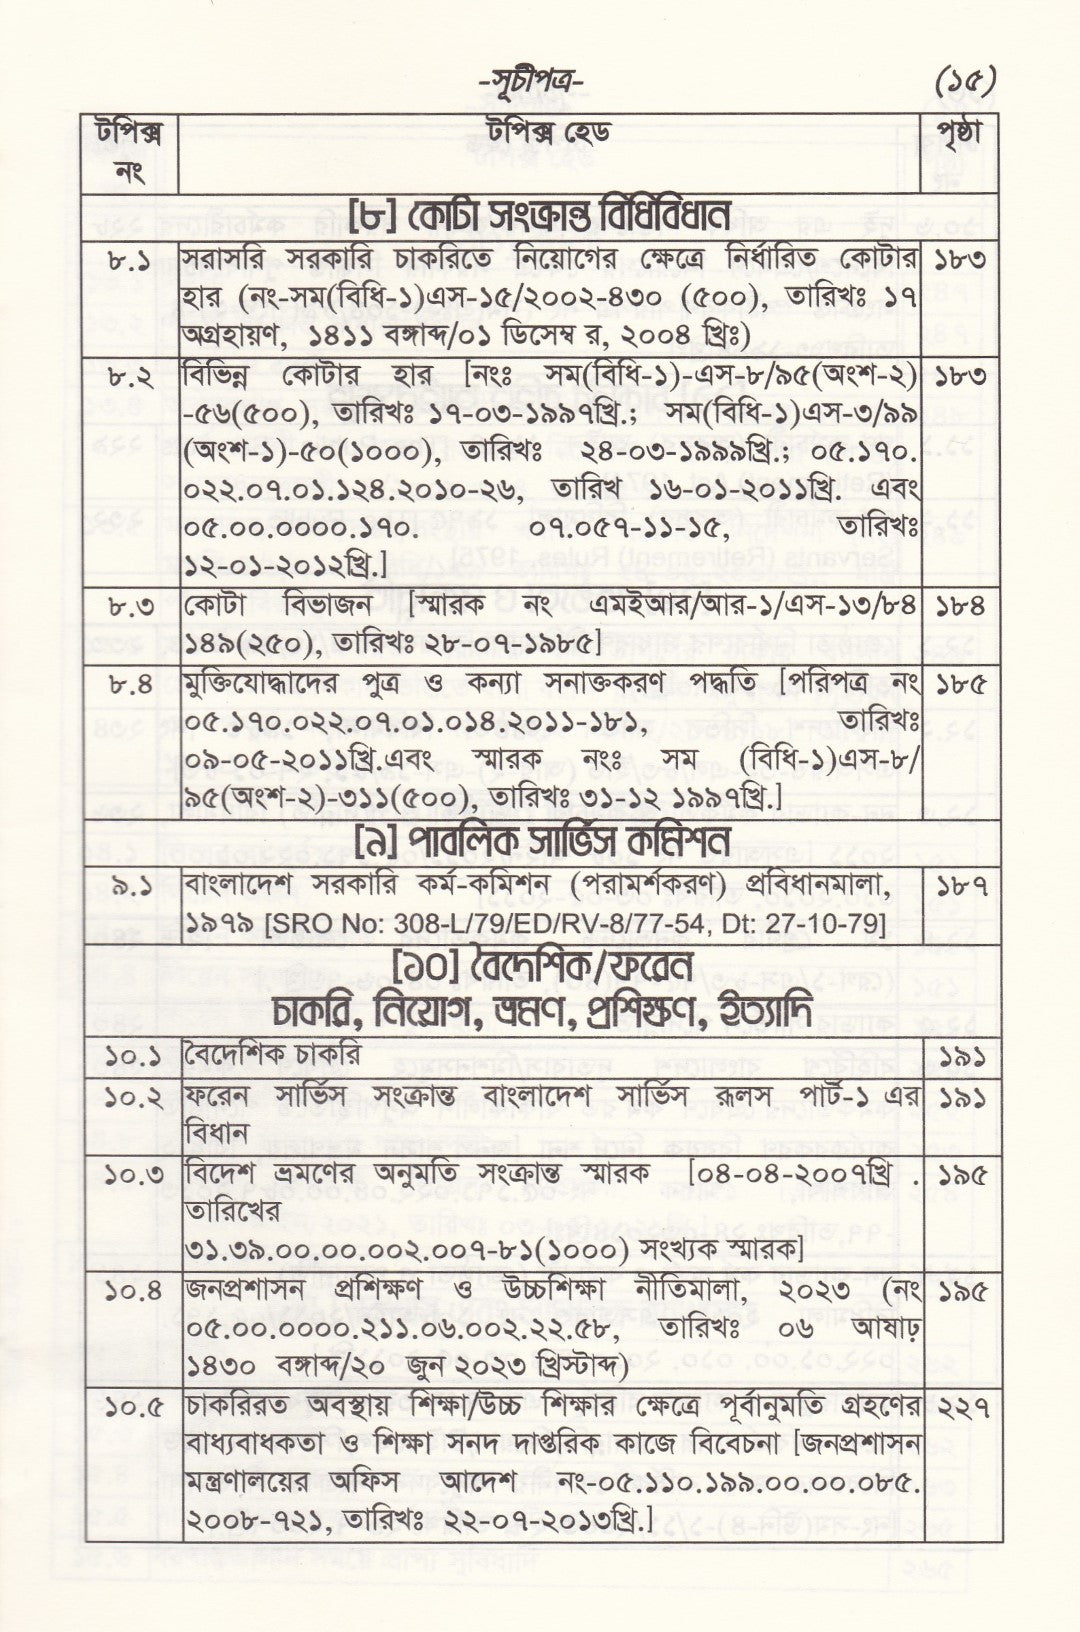 -সূচীপত্র-
(১৫)
টপিক্স নং
টপিক্স হেড
পৃষ্ঠা
[৮] কোটা সংক্রান্ত বিধিবিধান
৮.১ সরাসরি সরকারি চাকরিতে নিয়োগের ক্ষেত্রে নির্ধারিত কোটার ১৮৩
হার (নং-সম(বিধি-১)এস-১৫/২০০২-৪৩০ (৫০০), তারিখঃ ১৭
অগ্রহায়ণ, ১৪১১ বঙ্গাব্দ/০১ ডিসেম্ব র, ২০০৪ খ্রিঃ)
৮.২ বিভিন্ন কোটার হার [নংঃ সম(বিধি-১)-এস-৮/৯৫(অংশ-২) ১৮৩
-৫৬(৫০০), তারিখঃ ১৭-০৩-১৯৯৭খ্রি.; সম(বিধি-১)এস-৩/৯৯
(অংশ-১)-৫০(১০০০), তারিখঃ ২৪-০৩-১৯৯৯খ্রি.; ০৫.১৭০.
০২২.০৭.০১.১২৪.২০১০-২৬, তারিখ ১৬-০১-২০১১খ্রি. এবং
০৫.০০.০০০০.১৭০. ০৭.০৫৭-১১-১৫, তারিখঃ
১২-০১-২০১২খ্রি.]
৮.৩ কোটা বিভাজন [স্মারক নং এমইআর/আর-১/এস-১৩/৮৪ ১৮৪
১৪৯(২৫০), তারিখঃ ২৮-০৭-১৯৮৫]
৮.৪ মুক্তিযোদ্ধাদের পুত্র ও কন্যা সনাক্তকরণ পদ্ধতি [পরিপত্র নং ১৮৫
০৫.১৭০.০২২.০৭.০১.০১৪.২০১১-১৮১, তারিখঃ
০৯-০৫-২০১১খ্রি.এবং স্মারক নংঃ সম (বিধি-১)এস-৮/
৯৫(অংশ-২)-৩১১(৫০০), তারিখঃ ৩১-১২ ১৯৯৭খ্রি.]
[৯] পাবলিক সার্ভিস কমিশন
৯.১ বাংলাদেশ সরকারি কর্ম-কমিশন (পরামর্শকরণ) প্রবিধানমালা, ১৮৭
১৯৭৯ [SRO No: 308-L/79/ED/RV-8/77-54, Dt: 27-10-79]
[১০] বৈদেশিক/ফরেন
চাকরি, নিয়োগ, ভ্রমণ, প্রশিক্ষণ, ইত্যাদি
১০.১ বৈদেশিক চাকরি ১৯১
১০.২ ফরেন সার্ভিস সংক্রান্ত বাংলাদেশ সার্ভিস রূলস পার্ট-১ এর ১৯১
বিধান
১০.৩ বিদেশ ভ্রমণের অনুমতি সংক্রান্ত স্মারক [০৪-০৪-২০০৭খ্রি . ১৯৫
তারিখের
৩১.৩৯.০০.০০.০০২.০০৭-৮১(১০০০) সংখ্যক স্মারক]
১০.৪ জনপ্রশাসন প্রশিক্ষণ ও উচ্চশিক্ষা নীতিমালা, ২০২৩ (নং ১৯৫
০৫.০০.০০০০.২১১.০৬.০০২.২২.৫৮, তারিখঃ ০৬ আষাঢ়
১৪৩০ বঙ্গাব্দ/২০ জুন ২০২৩ খ্রিস্টাব্দ)
১০.৫ চাকরিরত অবস্থায় শিক্ষা/উচ্চ শিক্ষার ক্ষেত্রে পূর্বানুমতি গ্রহণের ২২৭
বাধ্যবাধকতা ও শিক্ষা সনদ দাপ্তরিক কাজে বিবেচনা [জনপ্রশাসন
মন্ত্রণালয়ের অফিস আদেশ নং-০৫.১১০.১৯৯.০০.০০.০৮৫.
২০০৮-৭২১, তারিখঃ ২২-০৭-২০১৩খ্রি.]